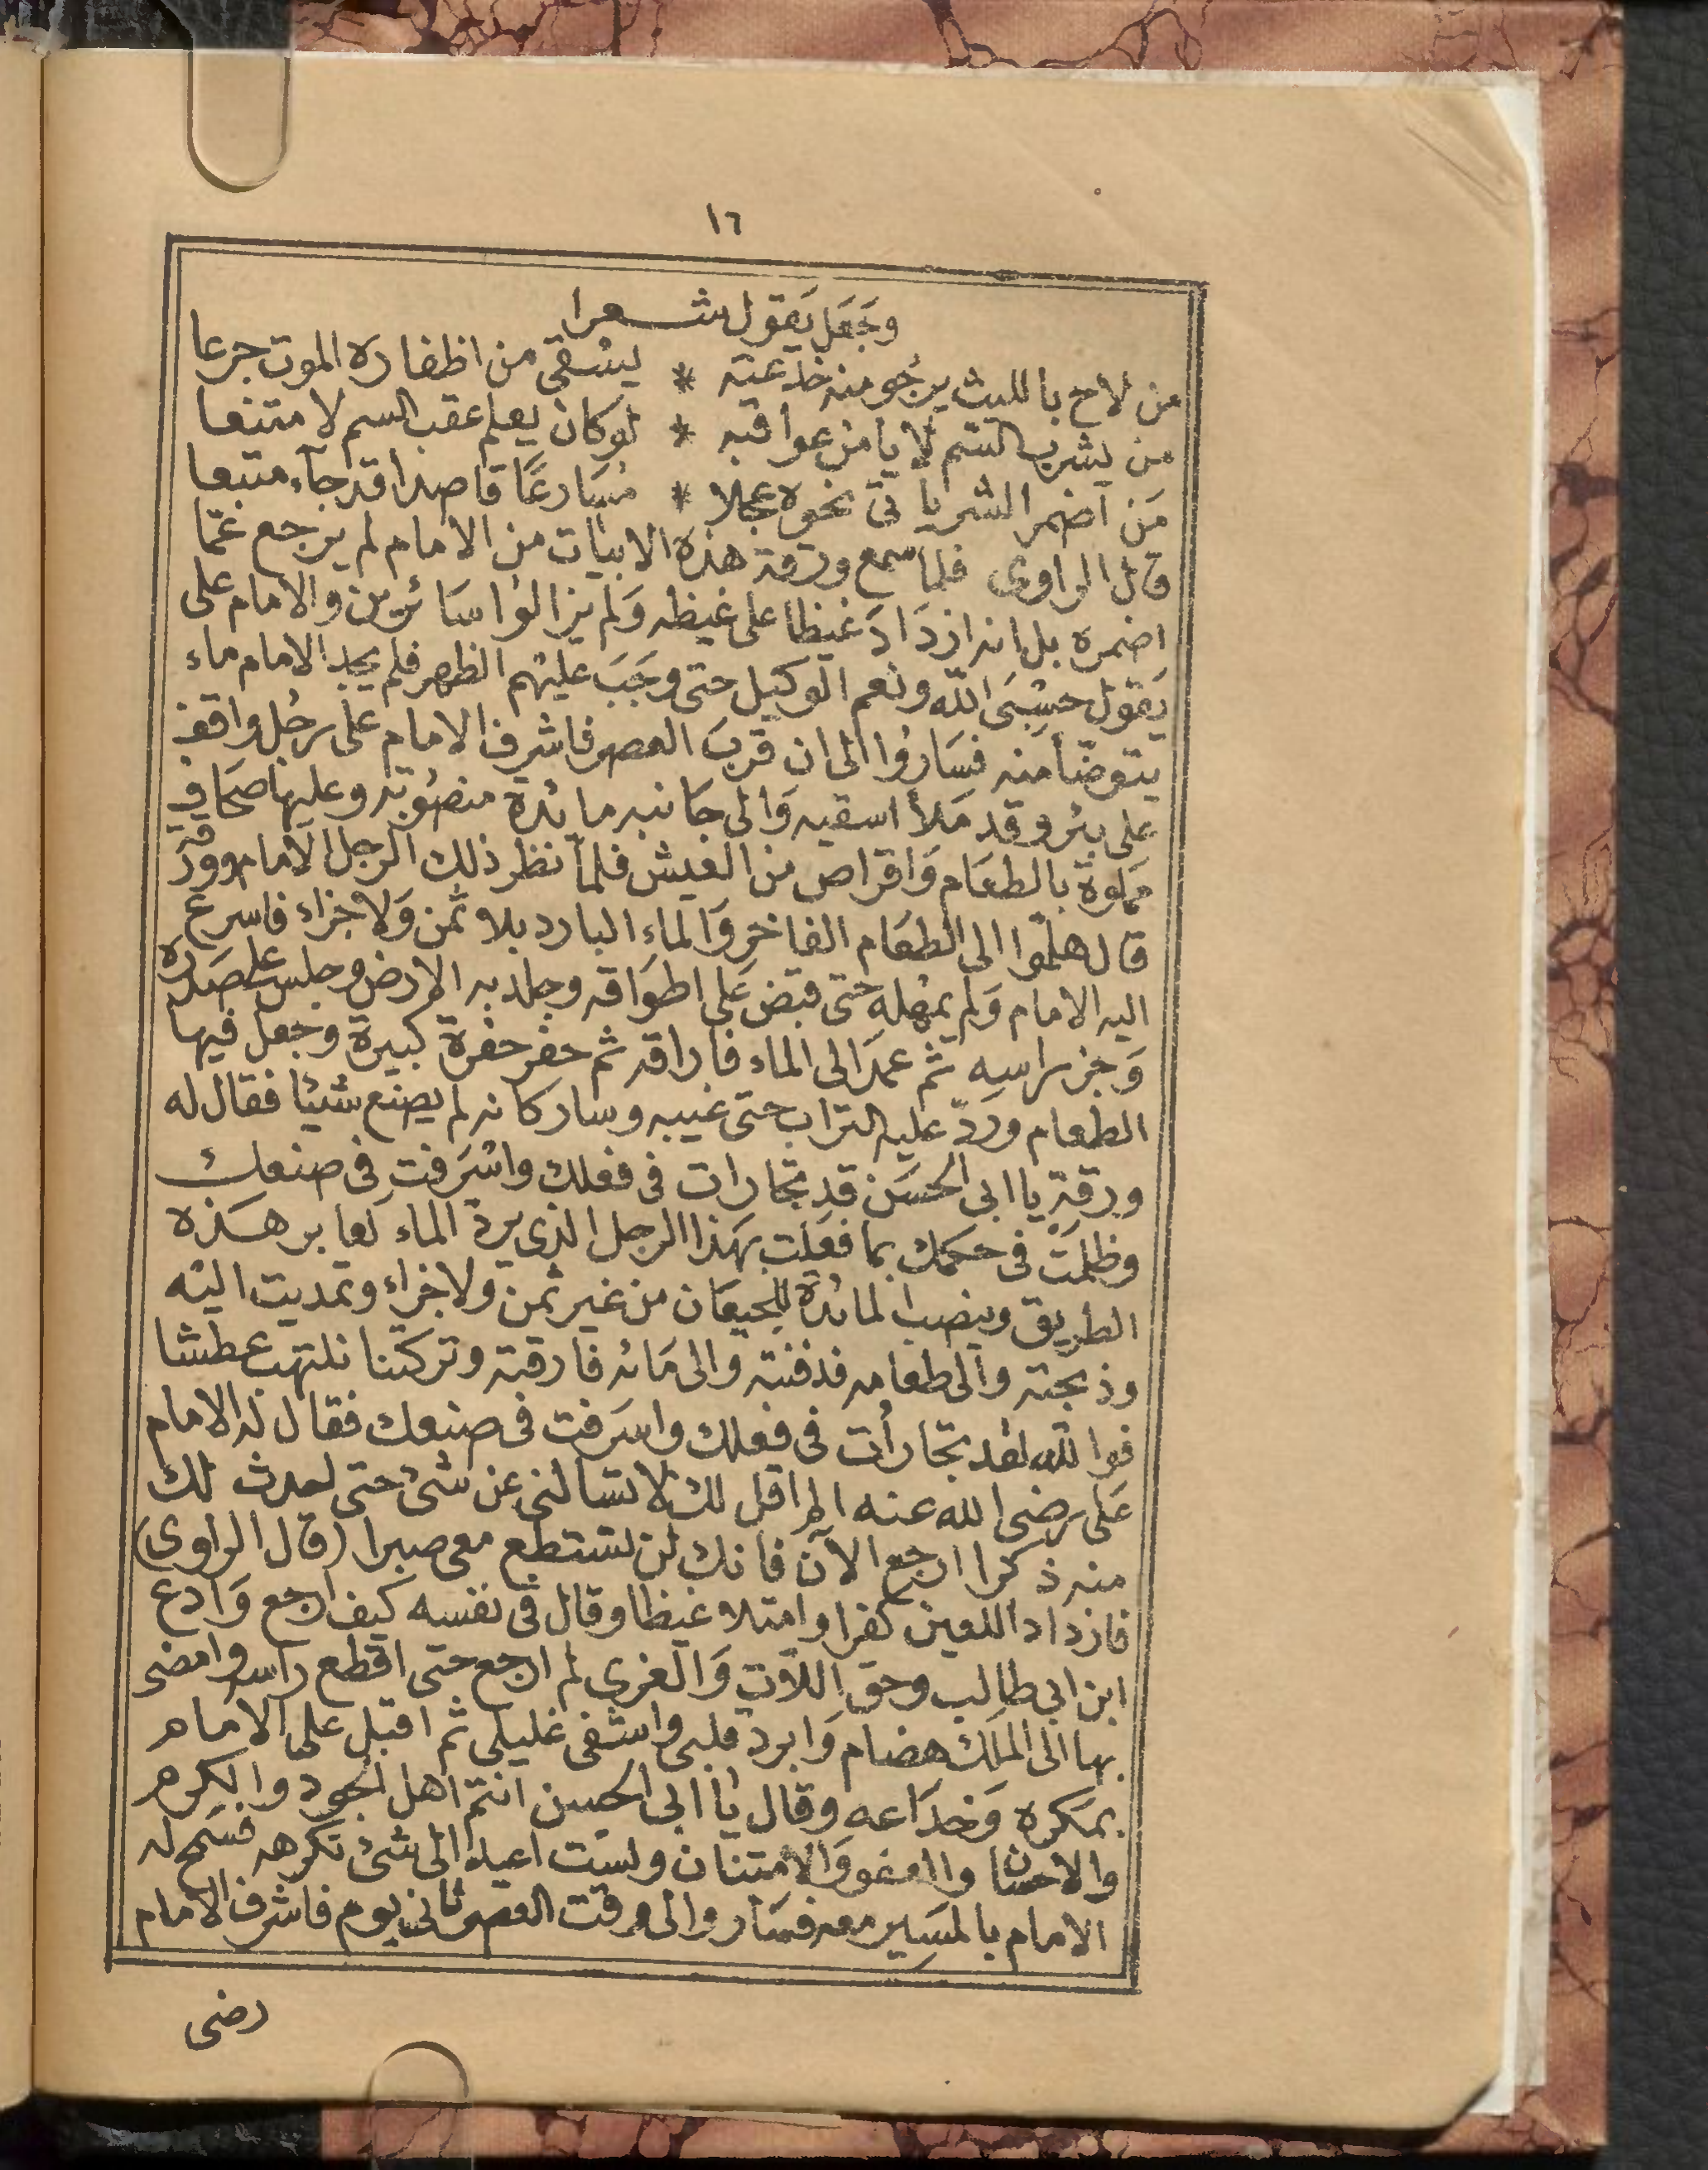 ١٦
وجَعَل يَقول شعرا
من لاح بالليث يرجو منه خدعته * يسقى من اظفاره الموت جزعا
من يشرب السم لا يامن عواقبه * لوكان يعلم عقب السم لامتنعا
مَن اضمر الشر ياتى نحوه عجلا * مسَارعًا قاصدا قد جآء متبعا
قال الراوى فلما سمع ورقة هذه الابيات من الامام لم يرجع عمّا
اضمره بل انه ازدَادَ غيظا على غيظه وَلم يزالوا سَائرين والامام على
يَقول حسْبَى الله ونعم الوكيل حتى وجَبَ عليهم الظهر فلم يجد الامام ماء
يتوضأ منه فسَارُوا الى ان قربَ العصر فاشرف الامام على رجُل واقف
على بئر وقد مَلأ اسقيه وَالى جَانبه مائدة منصُوبه وعليها صحَاف
مملوة بالطعَام وَاقراص من العيش فلمّا نظر ذلك الرجل الامام وورقة
قال هلمّوا الى الطعَام الفاخر وَالماءِ البارد بلا ثمن وَلا جزاء فاسرع
اليه الامام وَلم يمهله حتى قبض عَلى اطوَاقه وجلد به الارض وجلس على صدره
وَجز راسه ثم عمدَ الى الماء فاراقه ثم حفر حفرة كبيرة وجعل فيها
الطعام وردّ عليه التراب حتى غيبه وسار كانه لم يصنع شيئا فقال له
ورقة يا ابى الحسَن قد تجارات فى فعلك واسْرَفت فى صنعك
وظلمَتْ فى حكمك بما فعَلت بهَذا الرجل الذى يردّ الماء لعابر هَذه
الطريق وينصب المائدة للجيعَان من غير ثمن ولا جزاء وتمديت اليْه
وذبحته والى طعامه فدفنته والى مَائه فارقته وتركتنا نلتهب عطشا
فوالله لقد تجارأت فى فعلك واسَرفت فى صنعك فقال له الامام
عَلى رضى الله عنه الم اقل لك لا تسالنى عن شئ حتى احدث لك
منه ذكرا ارجع الآن فانك لن تستطع معى صبرا (قال الراوى)
فازداد اللعين كفرا وامتلا غيظا وقال فى نفسه كيف ارجع وَادع
ابن ابى طالب وحق اللآت وَالعزى لم ارجع حتى اقطع راسه وامضى
بها الى المَلك هضام وَابرد قلبى واشفى غليلى ثم اقبل على الامام
بمَكره وَخدَاعه وقال يا ابى الحسن انتم اهل الجود والكرم
والاحسان والعفو وَالامتنان ولسْت اعيد الى شئ تكرهه فسَمح له
الامام بالمسَير معه فسَاروا الى وقت العصر ثانى يوم فاشرف الامام
رضى